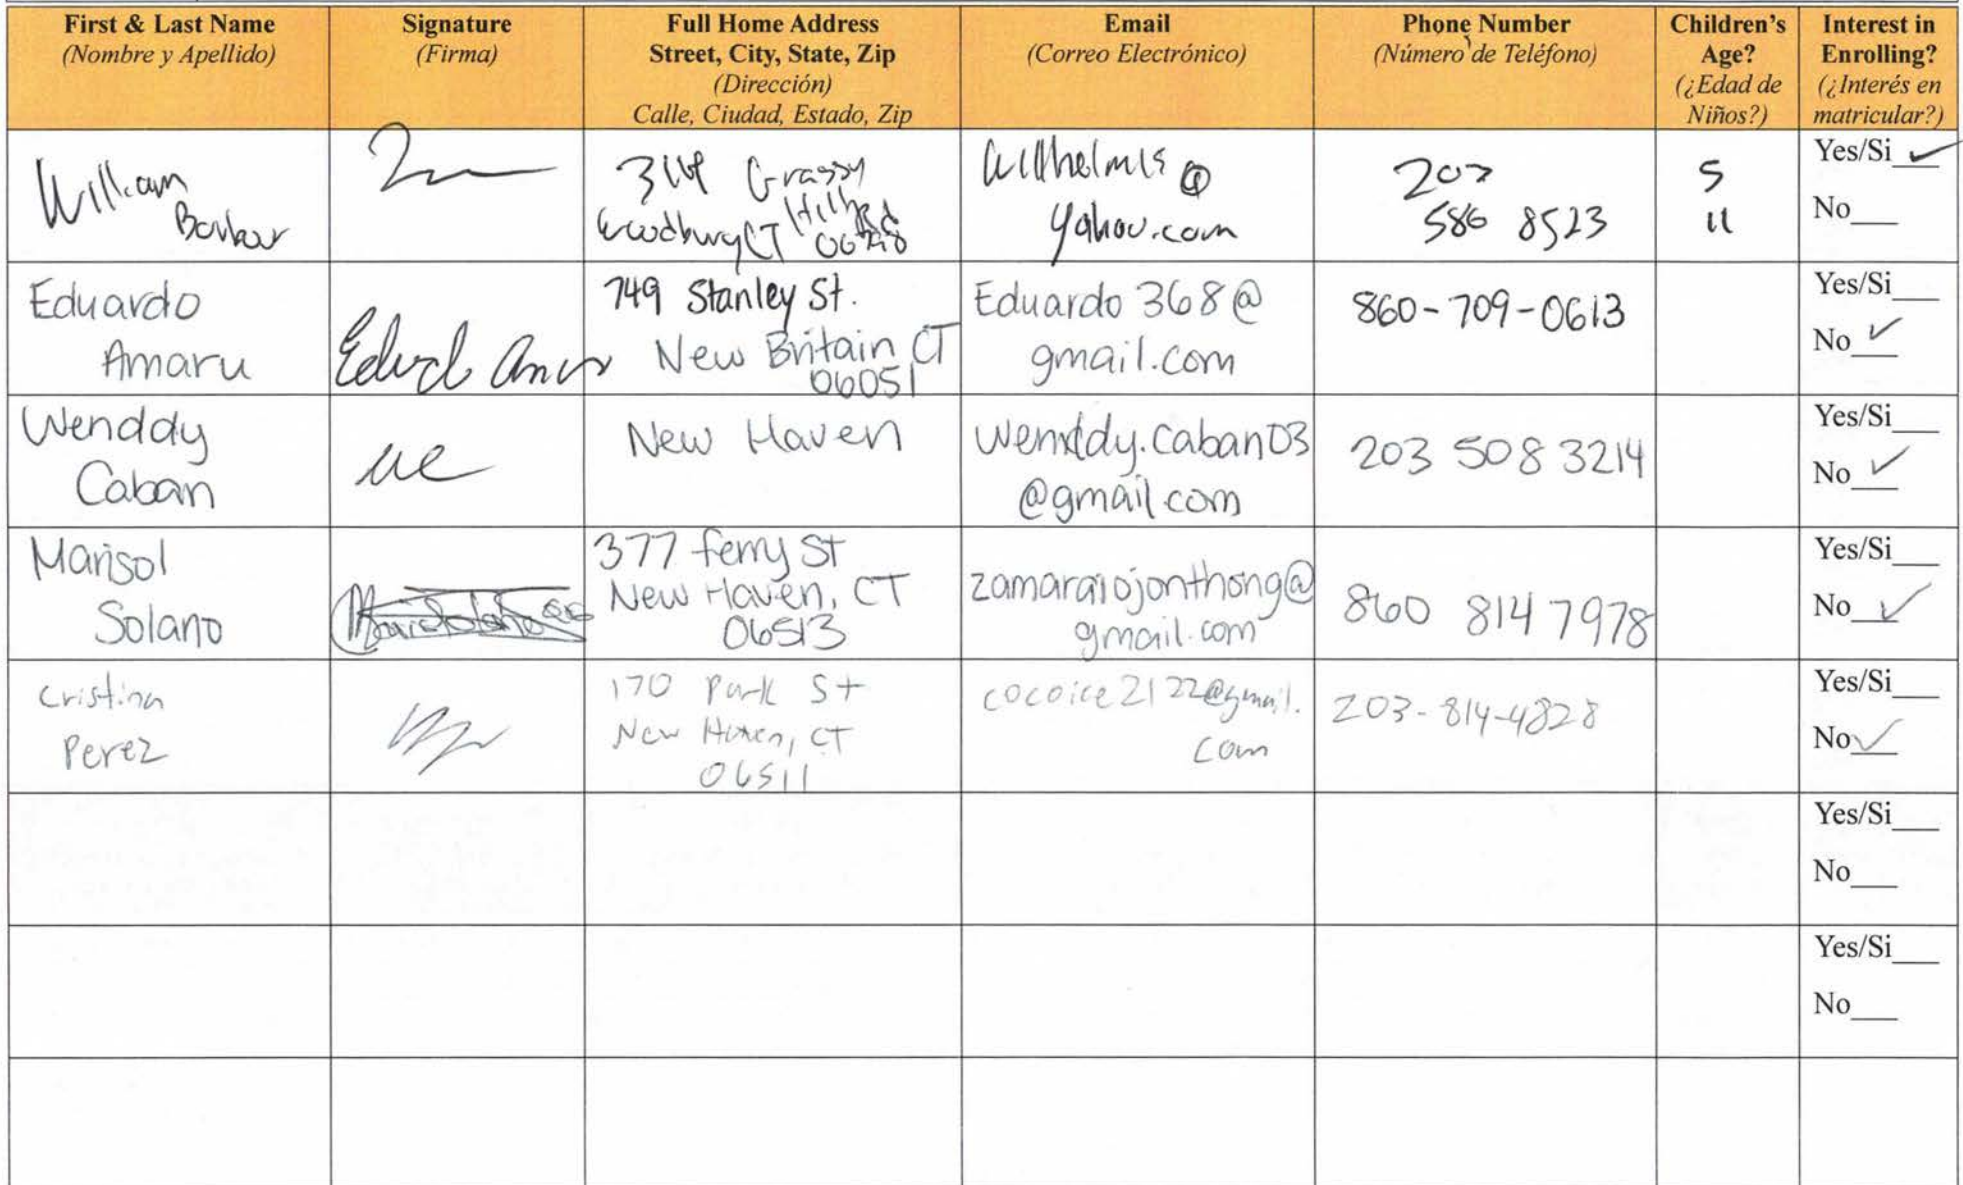 First & Last Name
(Nombre y Apellido)
Signature
(Firma)
Full Home Address
Street, City, State, Zip
(Dirección)
Calle, Ciudad, Estado, Zip
Email
(Correo Electrónico)
Phone Number
(Número de Teléfono)
Children's
Age?
(¿Edad de
Niños?)
Interest in
Enrolling?
(¿Interés en
matricular?)
William
Grassy
Hill Rd
Woodbury CT
@
yahoo.com
203
586 8523
5
11
Yes/Si ✓
No___
Eduardo
Amaru
749 Stanley St.
New Britain CT
06051
Eduardo 368@
gmail.com
860-709-0613
Yes/Si___
No ✓
Wenddy
Caban
New Haven
@gmail.com
203 508 3214
Yes/Si___
No ✓
Marisol
Solano
377 ferry St
New Haven, CT
06513
gmail.com
860 814 7978
Yes/Si___
No ✓
Cristina
Perez
170 Park St
New Haven, CT
06511
cocoice2122@gmail.
com
203-814-4828
Yes/Si___
No ✓
Yes/Si___
No___
Yes/Si___
No___